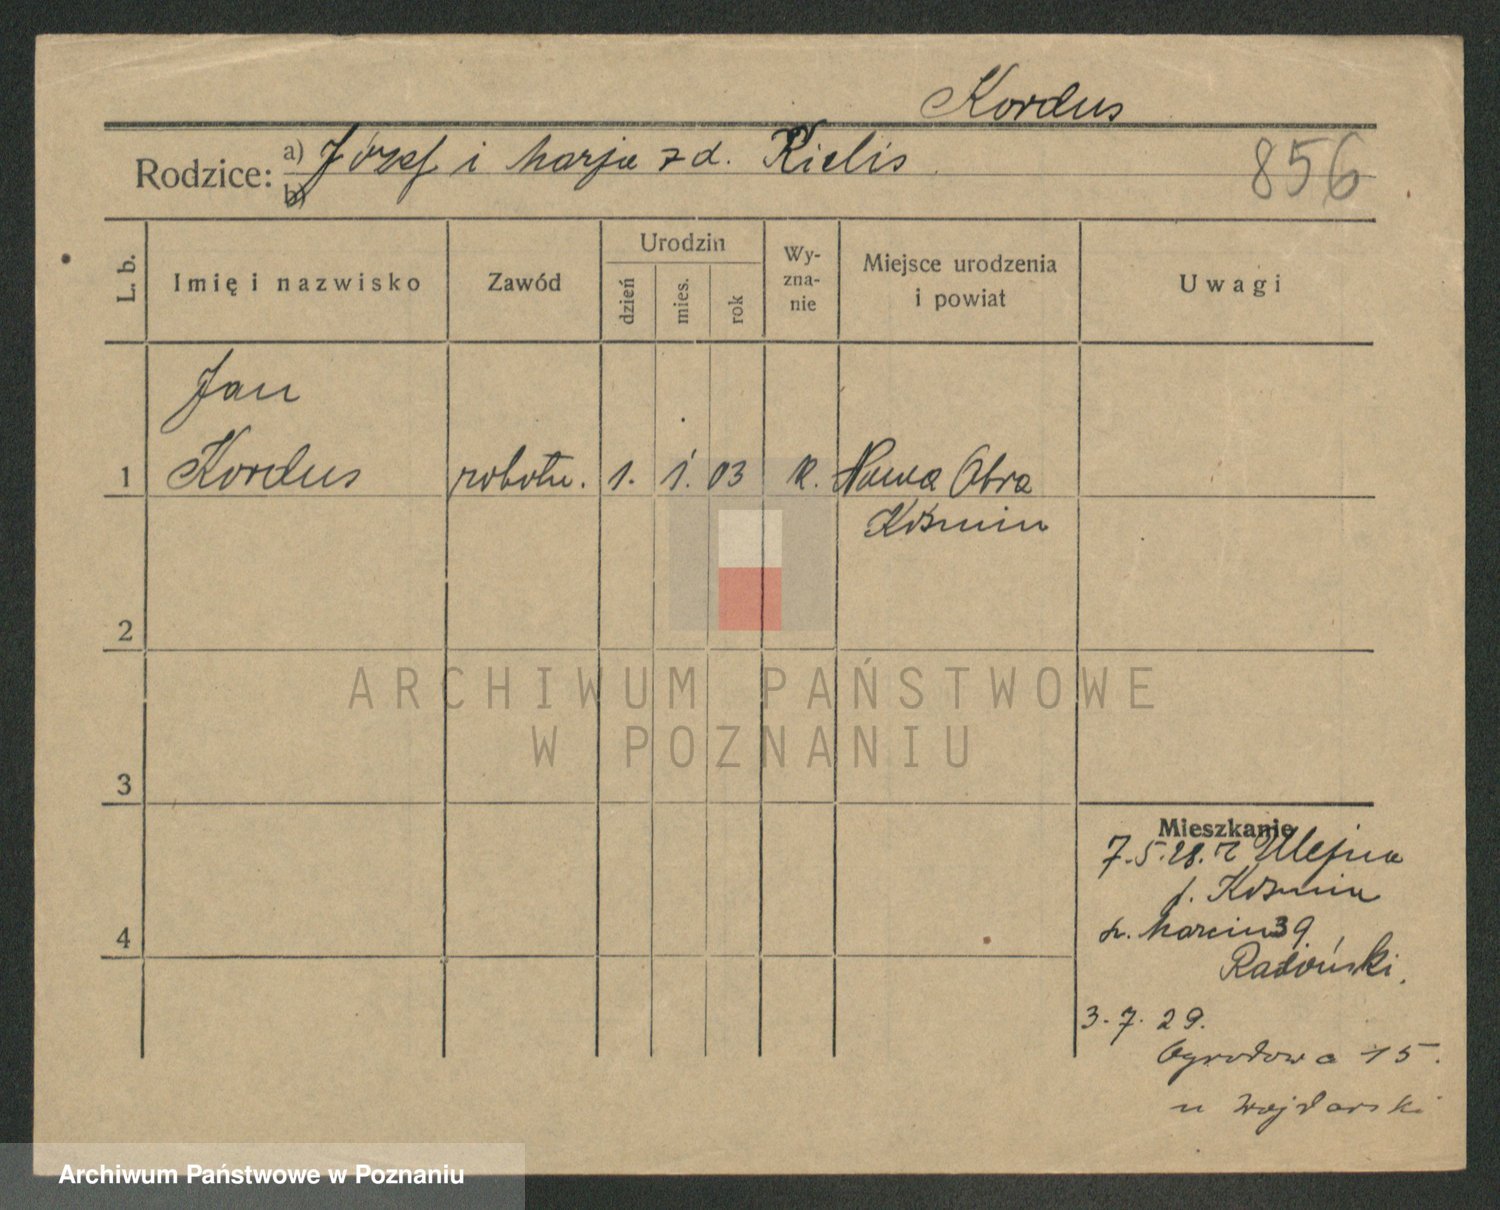 Kordus
Rodzice: a) Józef i Marja z d. Kielis
b)
856
L. b.
Imię i nazwisko
Zawód
Urodzin
dzień
mies.
rok
Wy-
zna-
nie
Miejsce urodzenia
i powiat
Uwagi
Jan
1 Kordus robotn. 1. 1. 03 k. Nowa Obra
Koźmin
2
ARCHIWUM PAŃSTWOWE
W POZNANIU
3
4
Mieszkanie
7.5.28. z
p. Koźmin
Marcin 39
3. 7. 29.
Ogrodowa 15.
u
Archiwum Państwowe w Poznaniu